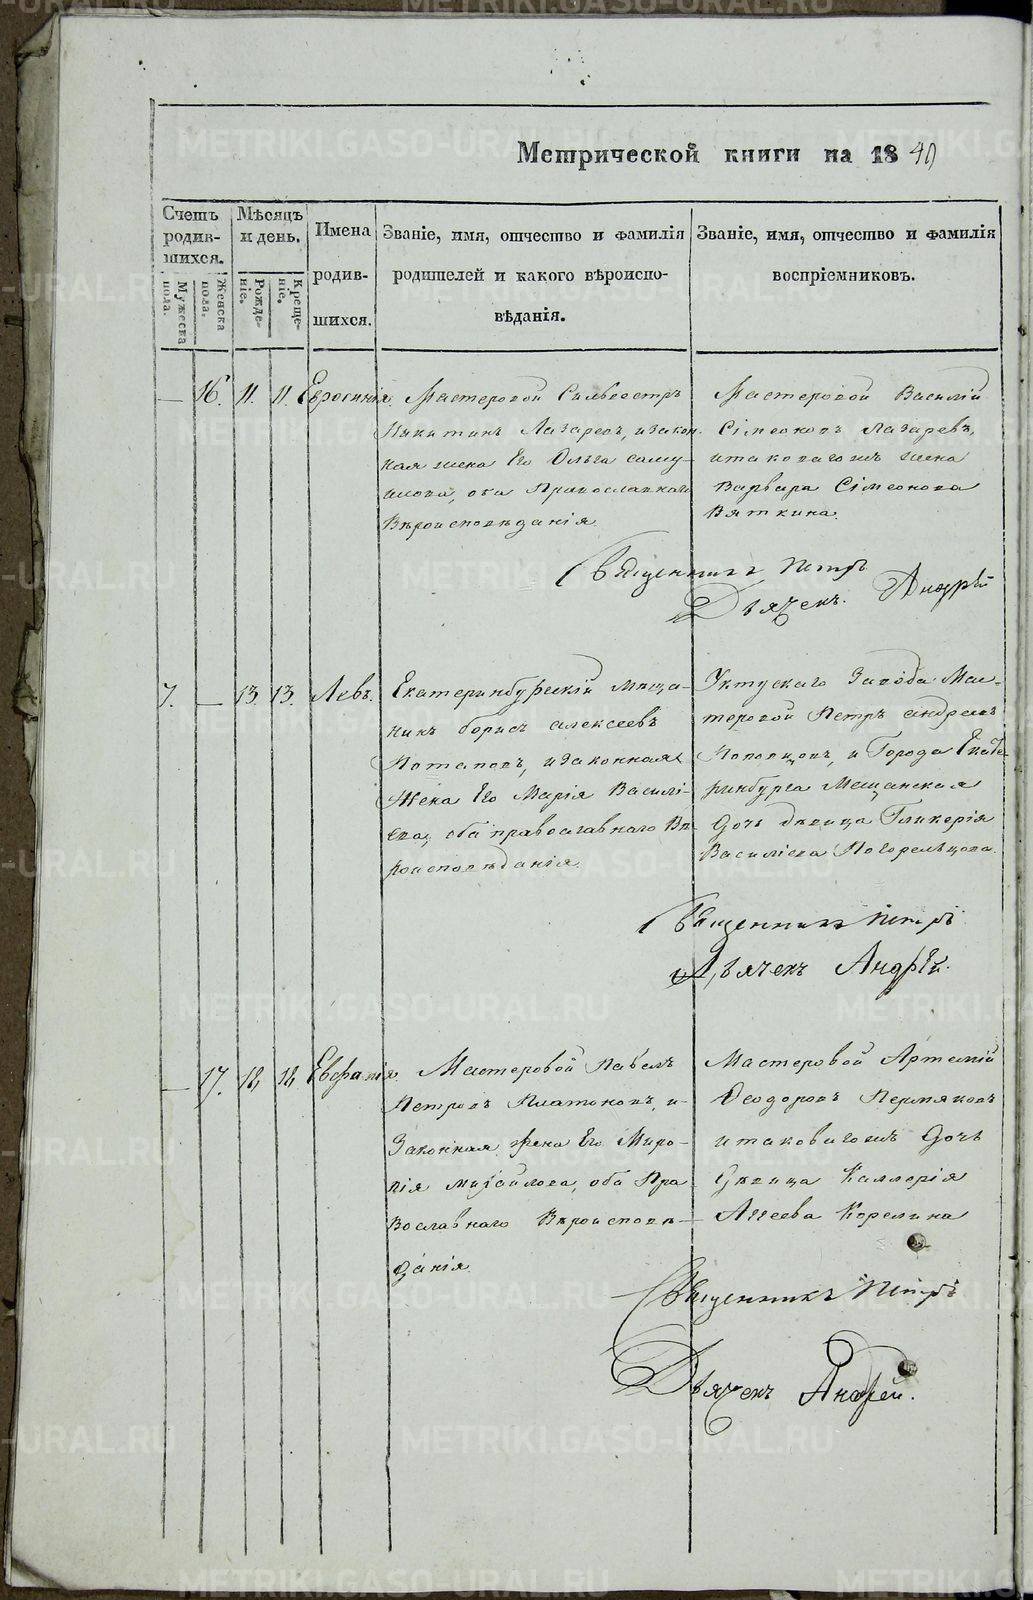 Метрической книги на 1840
Счетъ родив-шихся.
Мужеска пола.
Женска пола.
Мѣсяцъ и день.
Рожде-ніе.
Креще-ніе.
Имена родив-шихся.
Званіе, имя, отчество и фамилія
родителей и какого вѣроиспо-
вѣданія.
Званіе, имя, отчество и фамилія
воспріемниковъ.
— 16. 11. 11. Евросинія.
Мастеровой Сильвестръ
Никитинъ Лазаревъ, и закон-
ная жена Его Ольга Саму-
илова, оба Православнаго
Вѣроисповѣданія.
Мастеровой Василій
Сімеоновъ Лазаревъ,
и таковагожъ жена
Варвара Сімеонова
Вяткина.
Священникъ Петръ
Дьячекъ Андрей
7. — 13. 13. Левъ.
Екатеринбургскій Мѣща-
нинъ Борисъ Алексеевъ
Потаповъ, и законная
Жена Его Марія Василі-
ева, оба православнаго Вѣ-
роисповѣданія.
Уктускаго Завода Мас-
теровой Петръ Андреевъ
и Города Екате-
ринбурга Мещанская
Дочь девица Гликерія
Василіева Погорельцова.
Священникъ Петръ
Дьячекъ Андрей.
— 17. 18, 18, Евфанія.
Мастеровой Павелъ
Петровъ Платоновъ, и
Законная Жена Его Миро-
пія Михайлова, оба Пра
вославнаго Вѣроисповѣ-
данія.
Мастеровой Артемій
Феодоровъ Пермяковъ
и таковагожъ Дочь
Девица Каллерія
Корелина
Священникъ Петръ
Дьячекъ Андрей.
METRIKI.GASO-URAL.RU